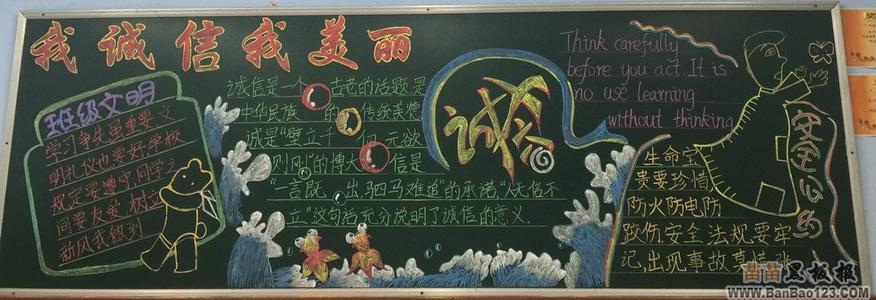 我诚信我美丽
班级文明
学习争先更重要,文
明礼仪也要好,学校
规定要遵守,同学之
间要友爱,树立
新风我做到
诚信是一个 古老的话题是
中华民族 的 传统美德
诚是"壁立千 仞 无欲
则刚"的博大 信是
"一言既 出,驷马难追"的承诺,"人无信不
立"这句话充分说明了诚信的意义.
诚信
Think carefully
before you act. It is
no use learning
without thinking
安全公约
生命宝
贵要珍惜
防火防电防
跌伤,安全法规要牢
记,出现事故莫惊张
苗苗黑板报
www.BanBao123.com